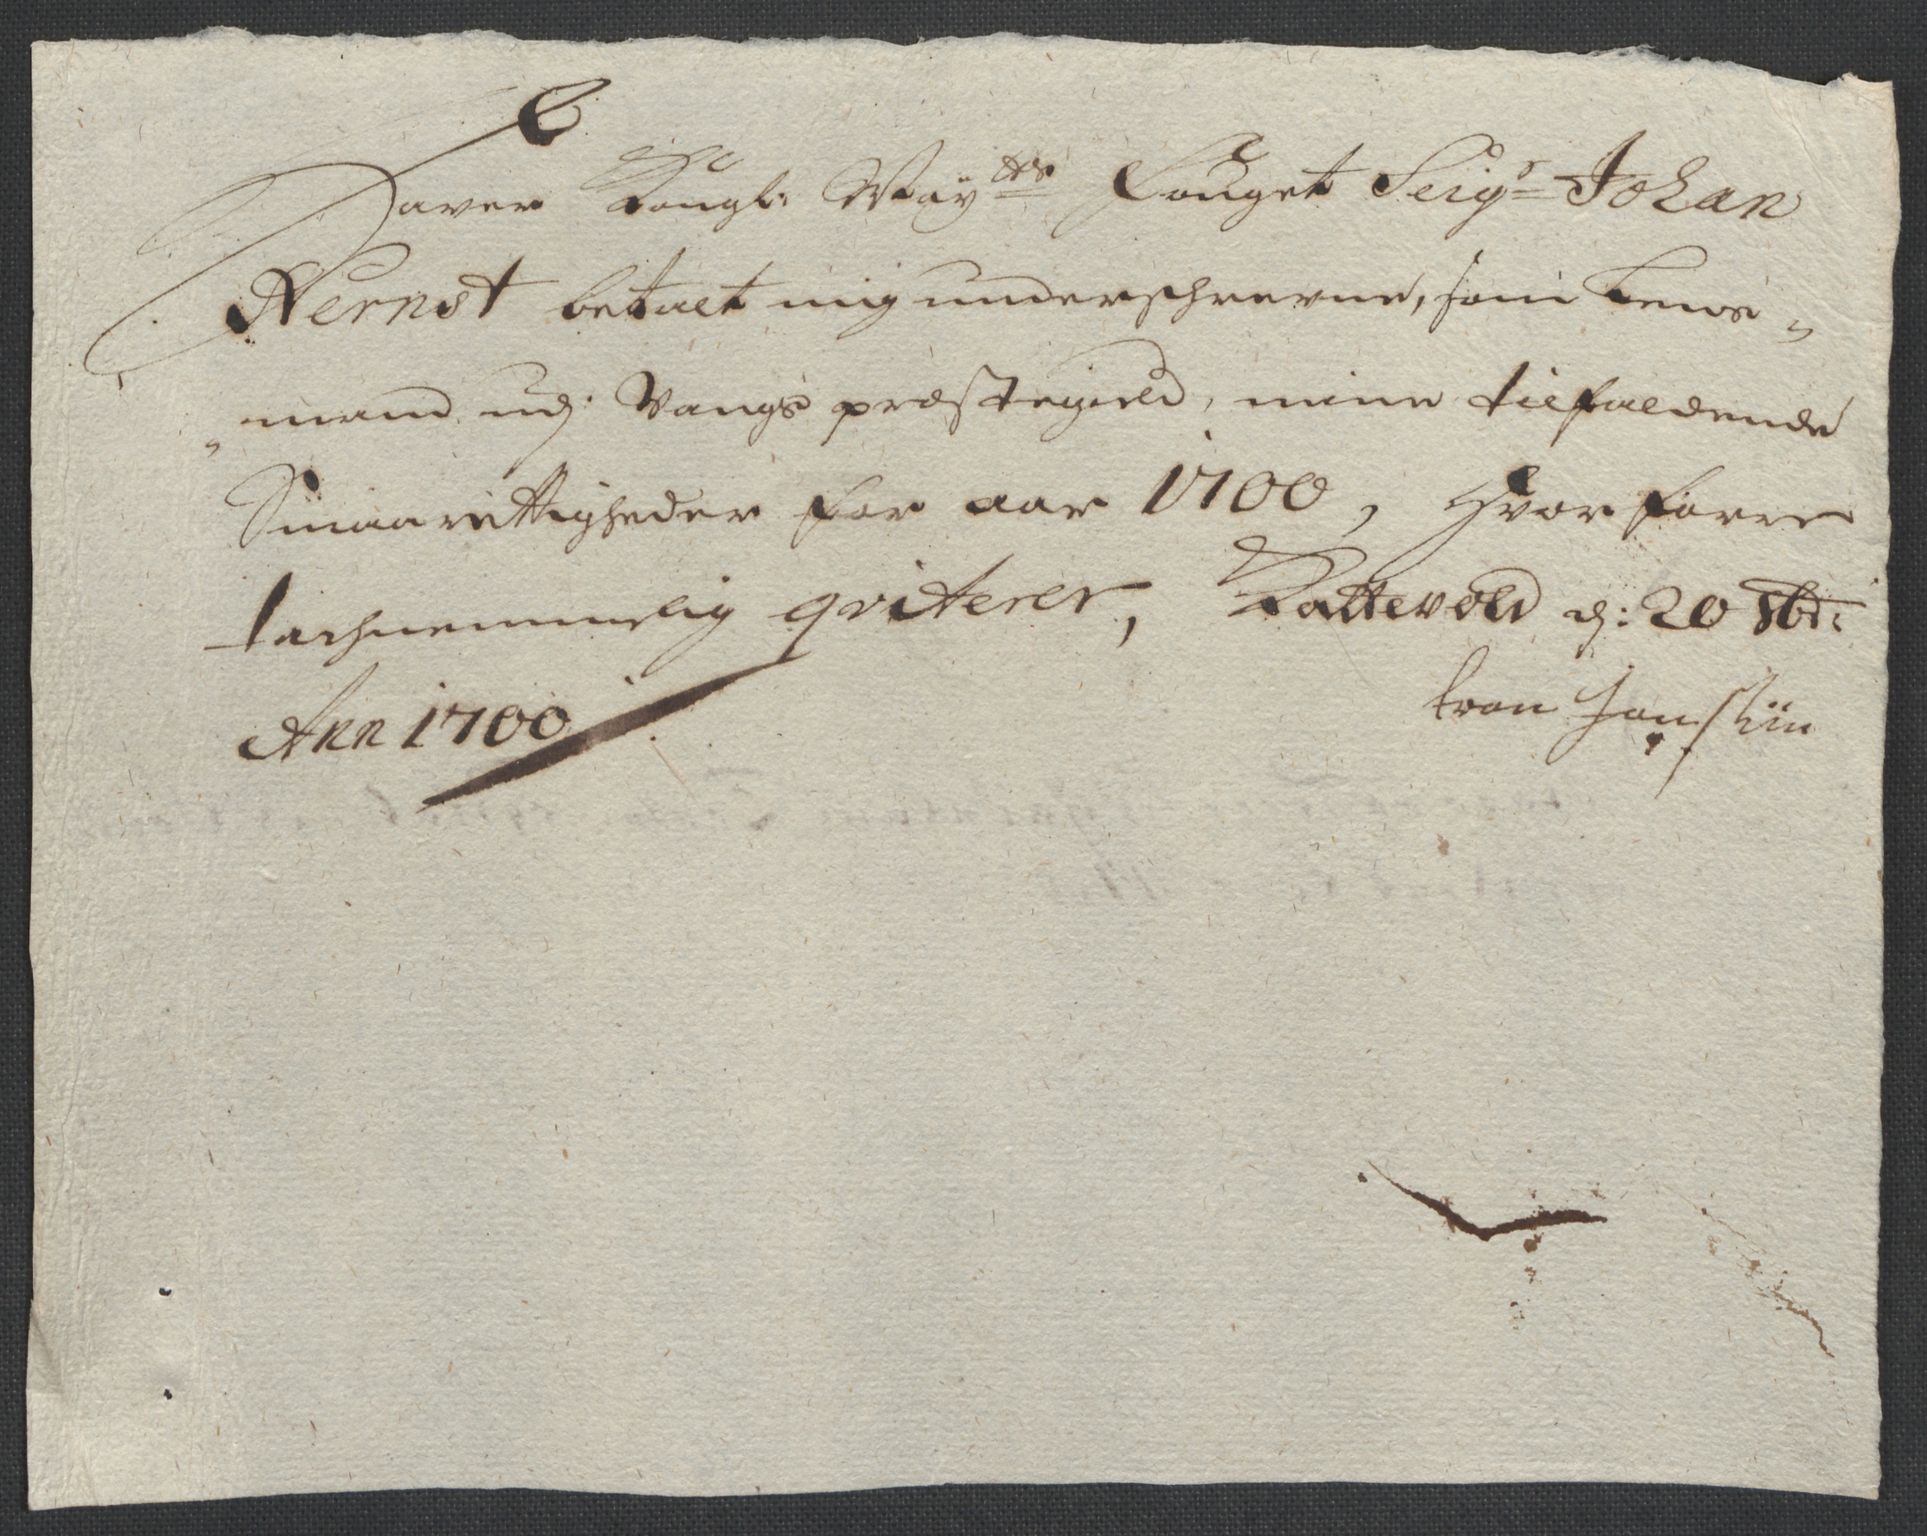 Haver Kongl: Maÿtts Fouget Seigr Johan
Wernst betalt mig underschrevne, som Lens-
mand udj Vangs præstegield, mine tilfaldende
Smaarettigheder for aar 1700, Hvor forre
tachnemmelig qviterer, Kattevold d: 20 8br:
Ann 1700